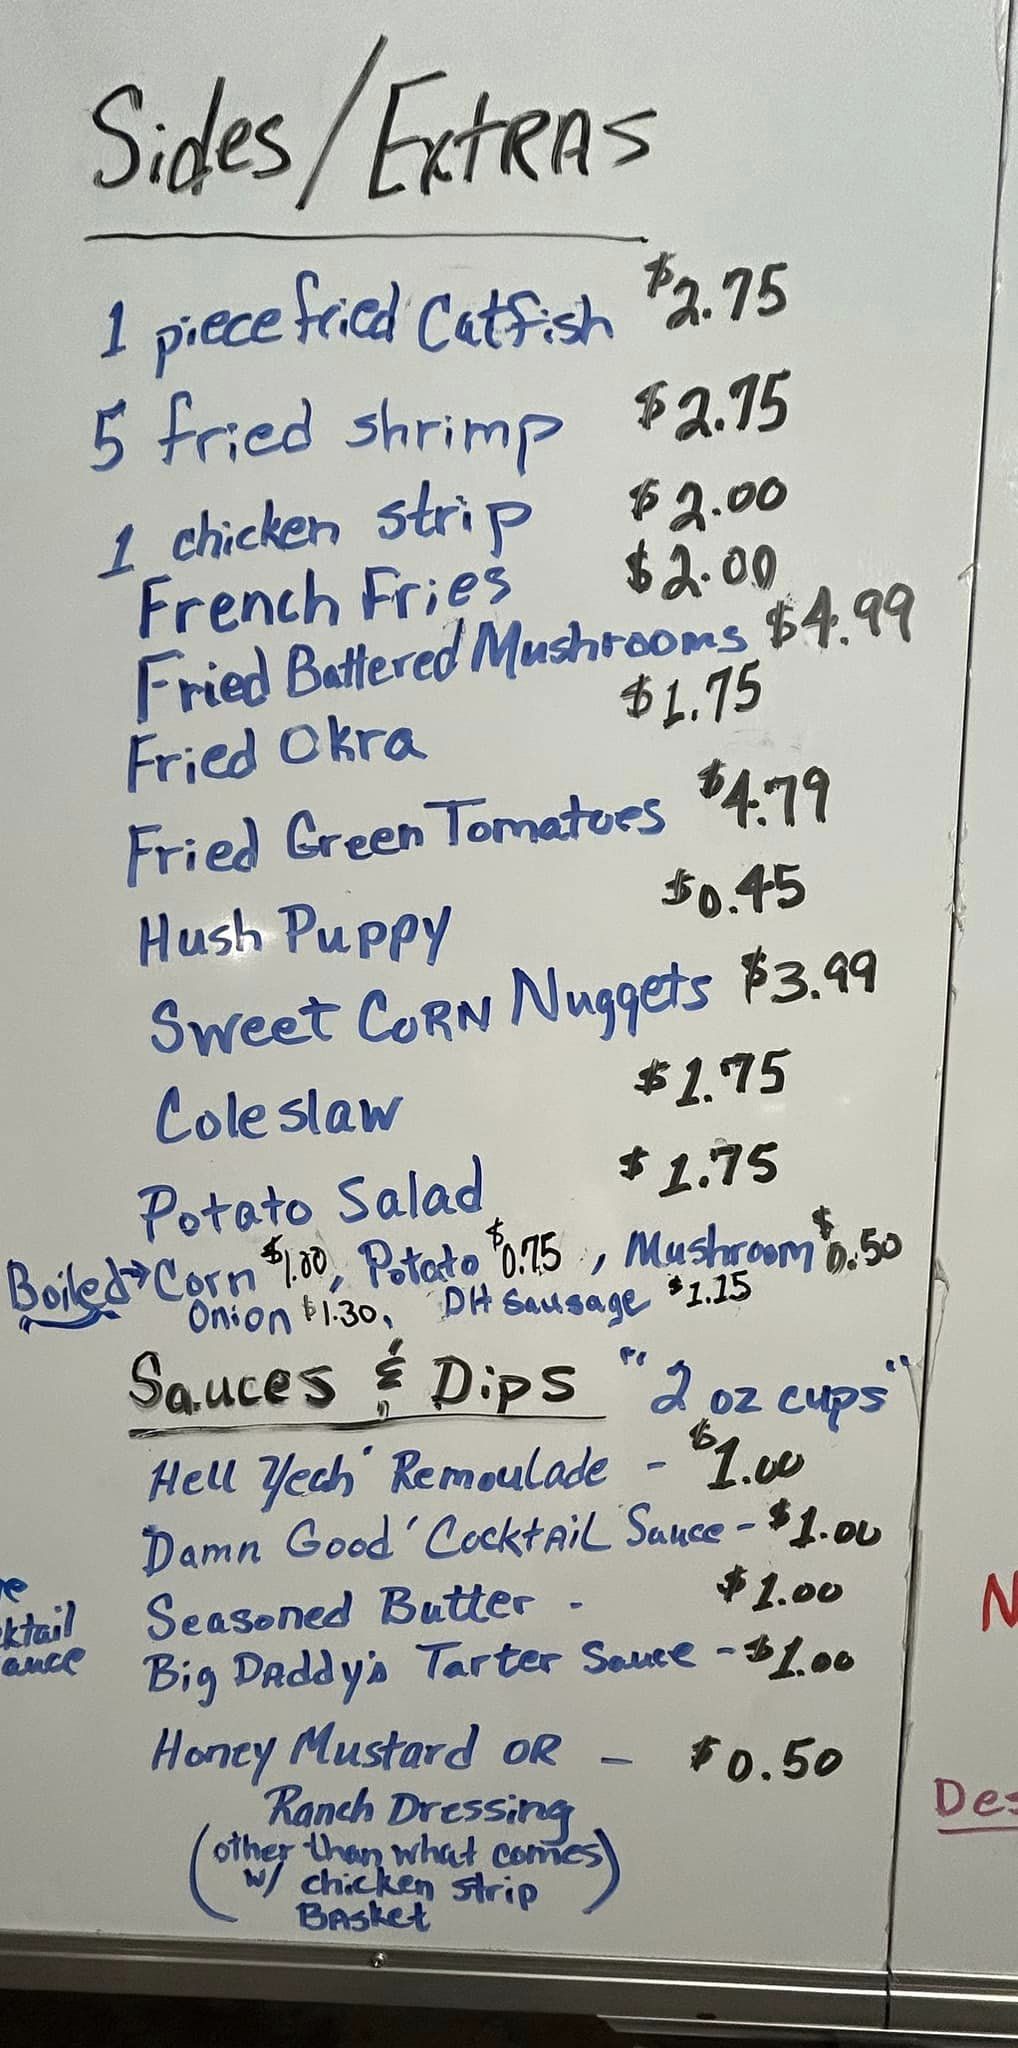 Sides/Extras
1 piece fried Catfish $2.75
5 fried shrimp $2.75
1 chicken strip $2.00
French Fries $2.00
Fried Battered Mushrooms $4.99
Fried Okra $1.75
Fried Green Tomatoes $4.79
Hush Puppy $0.45
Sweet CORN Nuggets $3.99
Coleslaw $1.75
Potato Salad $1.75
Boiled → Corn $1.00, Potato $0.75, Mushroom $0.50
Onion $1.30, DH Sausage $1.15
Sauces & Dips "2 oz cups"
Hell Yeah' Remoulade - $1.00
Damn Good' Cocktail Sauce - $1.00
Seasoned Butter - $1.00
Big Daddy's Tarter Sauce - $1.00
Honey Mustard OR - $0.50
Ranch Dressing
(other than what comes
w/ chicken strip
Basket)
ktail
auce
N
Des